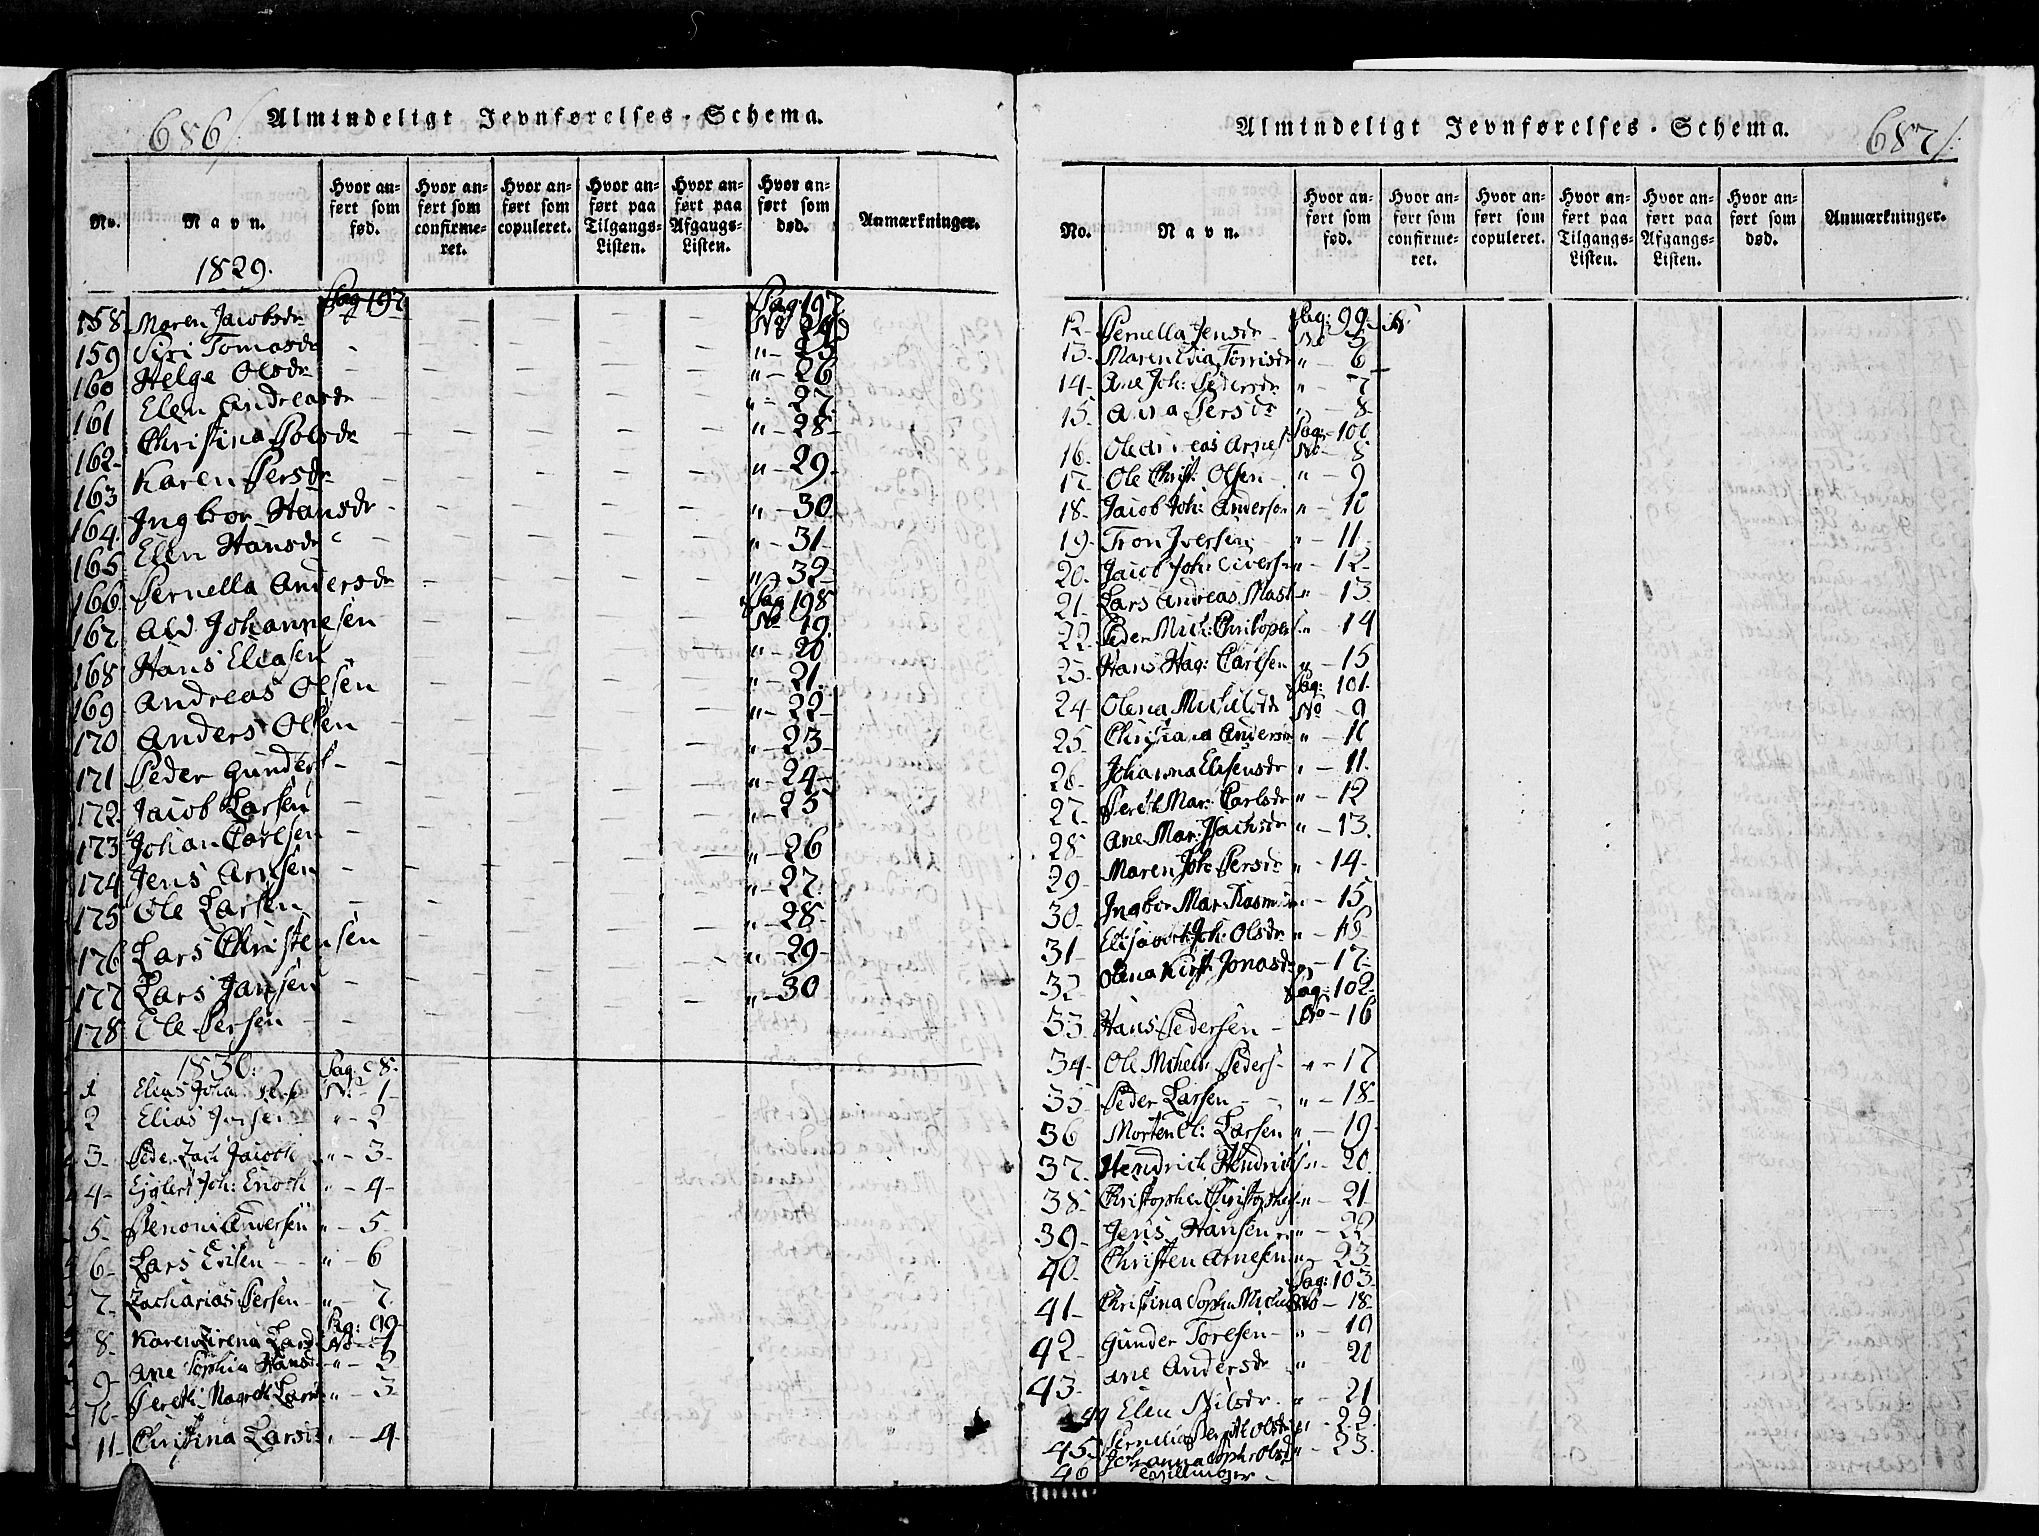 686/
Almindeligt Jevnførelses-Schema.
No.
Navn.
Hvor anført som fød.
Hvor anført som confirmeret.
Hvor anført som copuleret.
Hvor anført paa Tilgangs-Listen.
Hvor anført paa Afgangs-Listen.
Hvor anført som død.
Anmærkninger.
1829.
Pag 197 Pag: 197
158. Maren Jacobsdr No 24
159 Siri Tomasdr " 25
160 Helge Olsdr " - 26
161 Elen Andreasdr " - 27
162 Christina Polsdr " - 28
163 Karen Persdr " - 29
164. Ingbor Hansdr " - 30
165 Elen Hansdr " - 31
166. Pernella Andersdr " - 32
Pag 198
167. Ald Johannesen No 19
168 Hans Eliasen " - 20
169 Andreas Olsen " - 21
170 Anders Olsen " - 22
171 Peder Gunders " - 23
172. Jacob Larsen " - 24
173 Johan Carlsen " - 25
174 Jens Arnsen " - 26
175 Ole Larsen " - 27
176 Lars Christensen " - 28
177 Lars Jansen " - 29
178. Ole Persen " - 30
1830. Pag: 98.
1 Elias Johan Pers No - 1
2 Elias " - 2
3- Peder Zach Jacobs " - 3
4- Ejglert Joh: Enoch " - 4
5- Benoni Andersen " - 5
6- Lars Erilsen " - 6
7- Zacharias Persen " - 7
Pag: 99
8- Karen Lars No - 1
9- Ane Sophia Hans " - 2
10- Bereth Magreth Lars " - 3
11- Christina Larsd " - 4
Almindeligt Jevnførelses-Schema.
687/.
No.
Navn.
Hvor anført som fød.
Hvor anført som confirmeret.
Hvor anført som copuleret.
Hvor anført paa Tilgangs-Listen.
Hvor anført paa Afgangs-Listen.
Hvor anført som død.
Anmærkninger.
Pag: 99
12- Pernella Jensdr No 5
13- Maren Torrisdr " - 6
14- Ane Joh: Pedersdr " - 7
15- Ana Persdr " - 8
Pag: 100
16- Ole Andreas Arnes No - 8
17- Ole Christ. Olsen " - 9
18- Jacob Joh: Andersen " - 10
19- Tron Iversen " - 11
20. Jacob Joh: Siversen " - 12
21. Lars Andreas " - 13
22. Peder Mich: Christophers " - 14
23. Hans Hag: Carlsen " - 15
Pag: 101
24- Olena Michelsdr No - 9
25- Christiana Andersdr " - 10
26- Johanna Elisensdr " - 11
27- Bereth Mar: Carlsdr " - 12
28- Ane Mar: Isachsdr " - 13
29- Maren Joh: Persdr " - 14
30. Ingbor Mar: Rasmus " - 15
31- Elisabeth Joh: Olsdr " - 16
32- Olena Kirst: Jonasdr " - 17
Pag: 102
33- Hans Pedersen No - 16
34- Ole Michel: Peders " - 17
35- Peder Larsen " - 18
36 Morten El: Larsen " - 19
37. Hendrich Hendrichs " - 20
38- Christopher Christophers " - 21
39- Jens Hansen " - 22
40- Christen Arnesen " - 23
Pag: 103
41- Christina Sophia Michels No - 18
42- Gunder Toresen " - 19
43- Ane Andersdr " - 20
44 Elen Nilsdr " - 21
45 Pernella Bereth Olsdr " - 22
46 Johanna Soph: Olsd " - 23
Tvillinger